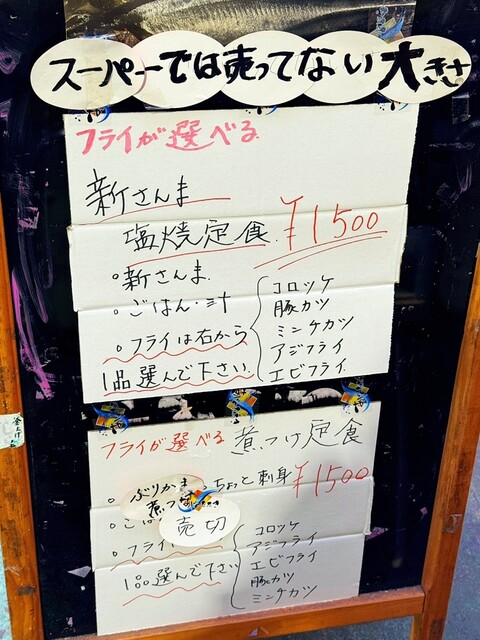 スーパーでは売ってない大きさ
フライが選べる
新さんま
塩焼定食 ¥1500
○新さんま
○ごはん・汁
○フライは右から
1品選んで下さい
コロッケ
豚カツ
ミンチカツ
アジフライ
エビフライ
フライが選べる 煮つけ定食
○ぶりかま ちょっと刺身 ¥1500
煮つけ
○ごは
売切
○フライ
1品選んで下さい
コロッケ
アジフライ
エビフライ
豚カツ
ミンチカツ